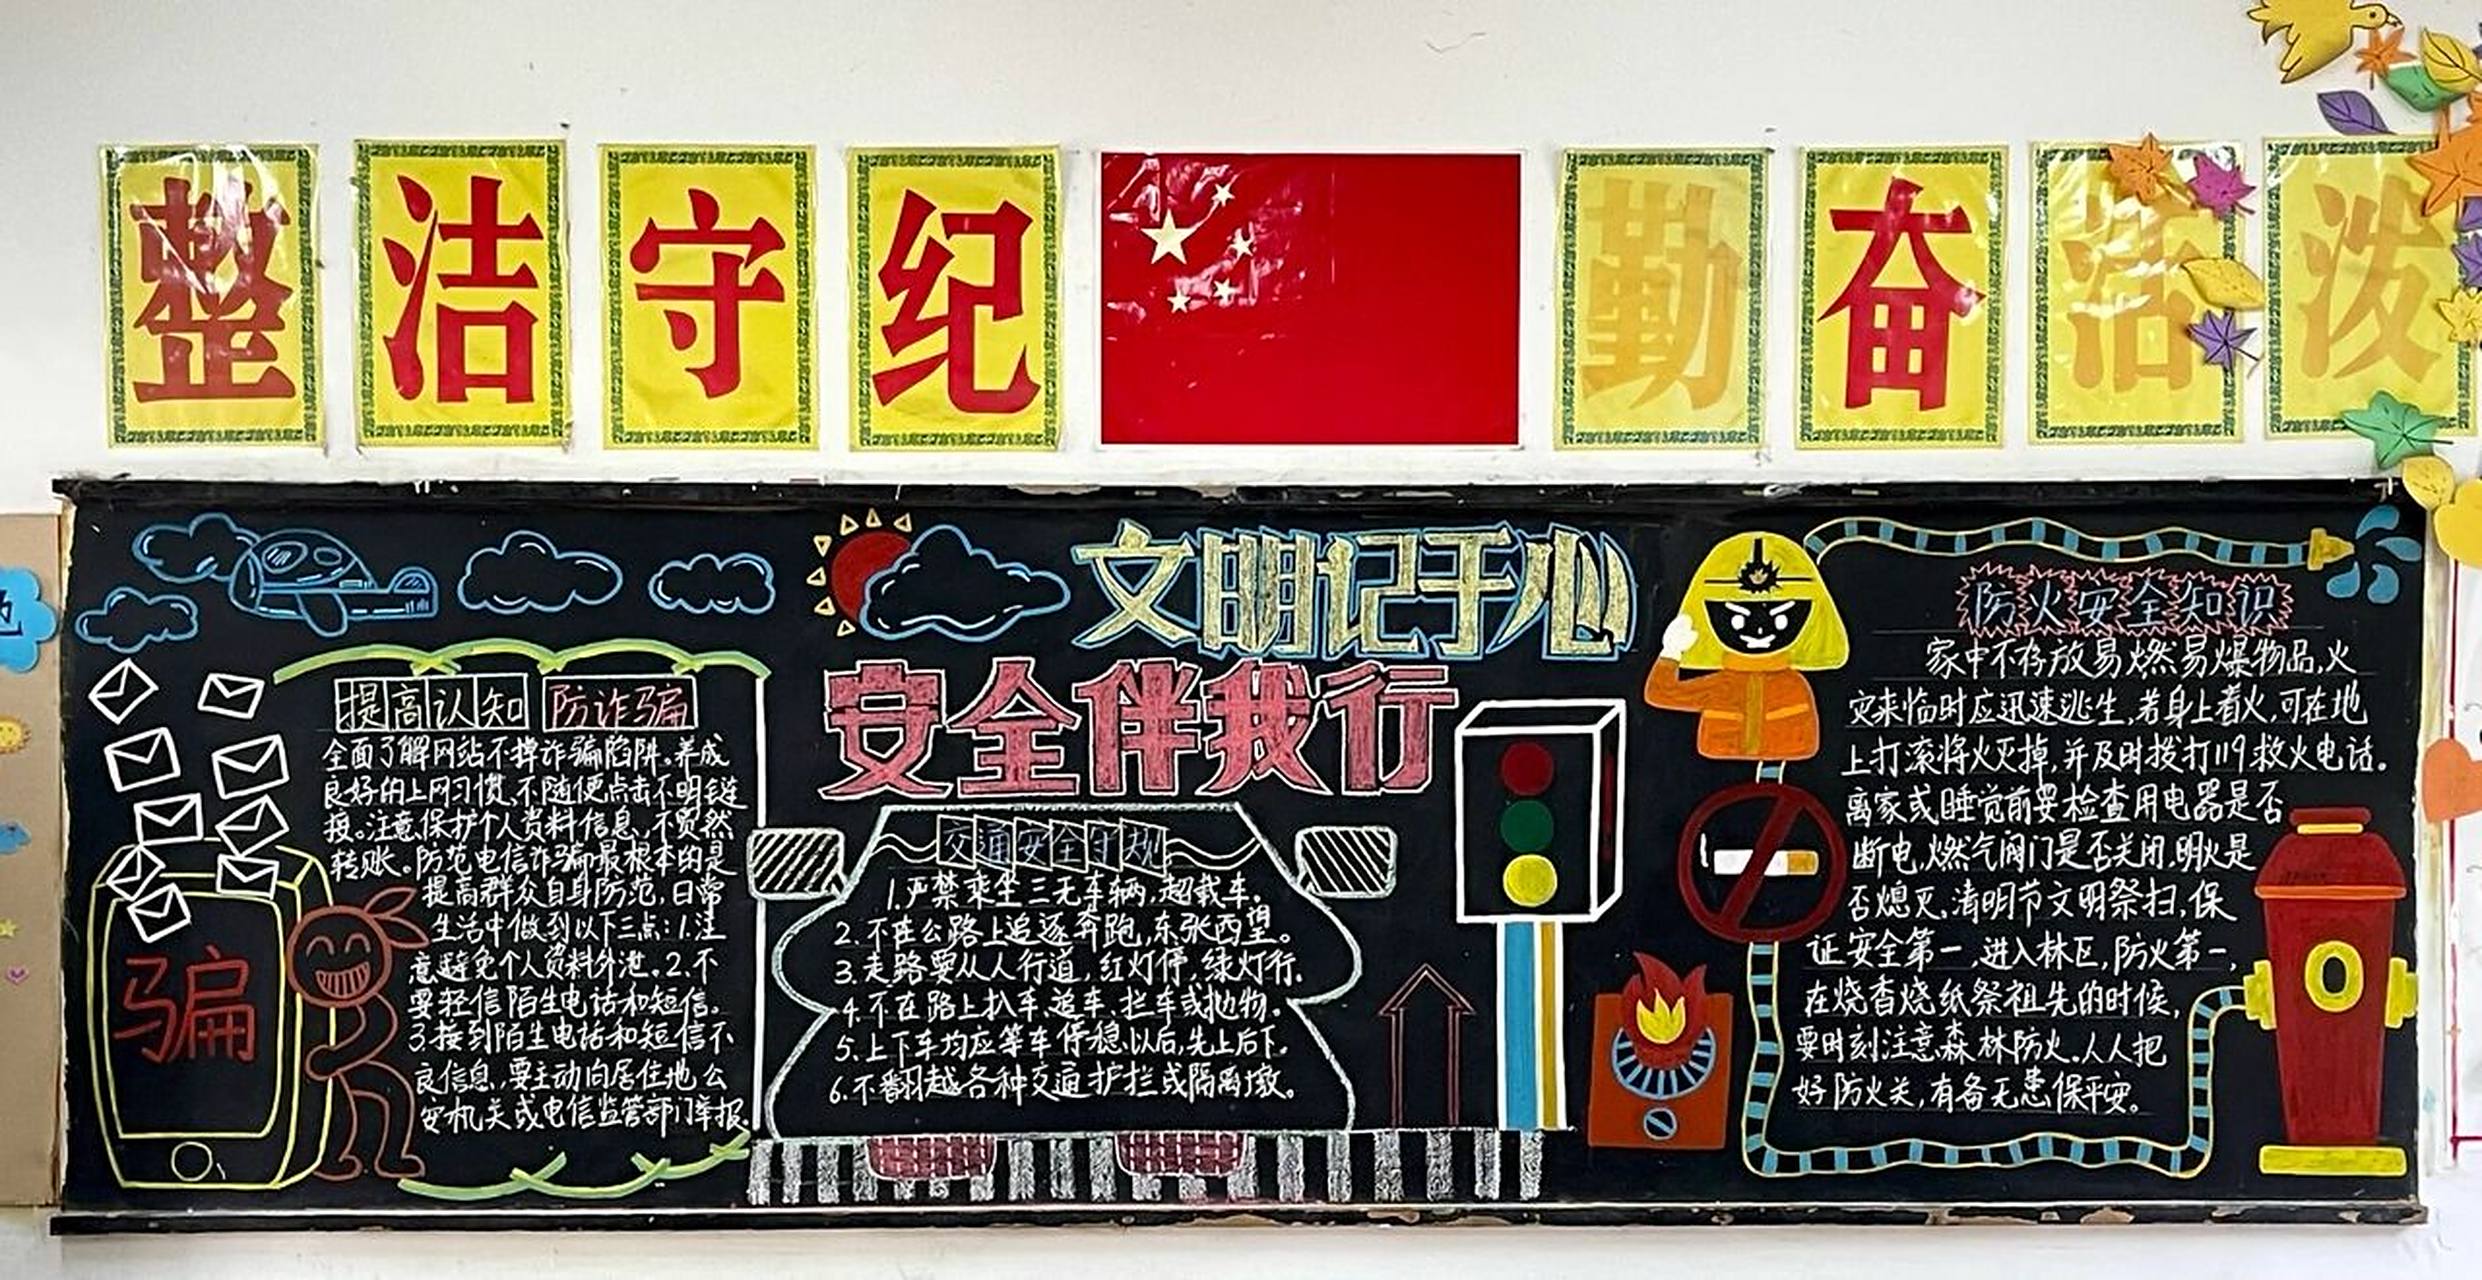 整洁守纪 勤奋活泼
文明记于心
安全伴我行
提高认知 防诈骗
全面了解网站不掉诈骗陷阱。养成
良好的上网习惯、不随便点击不明链
接。注意保护个人资料信息、不贸然
转账。防范电信诈骗最根本的是
提高群众自身防范,日常
生活中做到以下三点:1.注
意避免个人资料外泄。2.不
要轻信陌生电话和短信。
3接到陌生电话和短信不
良信息,要主动向居住地公
安机关或电信监管部门举报。
骗
交通安全守规
1.严禁乘坐三无车辆,超载车。
2.不在公路上追逐奔跑,东张西望。
3.走路要从人行道,红灯停,绿灯行.
4.不在路上扒车、追车、拦车或抛物。
5.上下车均应等车停稳以后,先上后下。
6.不翻越各种交通护拦或隔离墩。
防火安全知识
家中不存放易燃易爆物品,火
灾来临时应迅速逃生,若身上着火,可在地
上打滚将火灭掉,并及时拨打119救火电话。
离家或睡觉前要检查用电器是否
断电,燃气阀门是否关闭,明火是
否熄灭、清明节文明祭扫,保
证安全第一,进入林区,防火第一,
在烧香烧纸祭祖先的时候,
要时刻注意森林防火.人人把
好防火关,有备无患保平安。